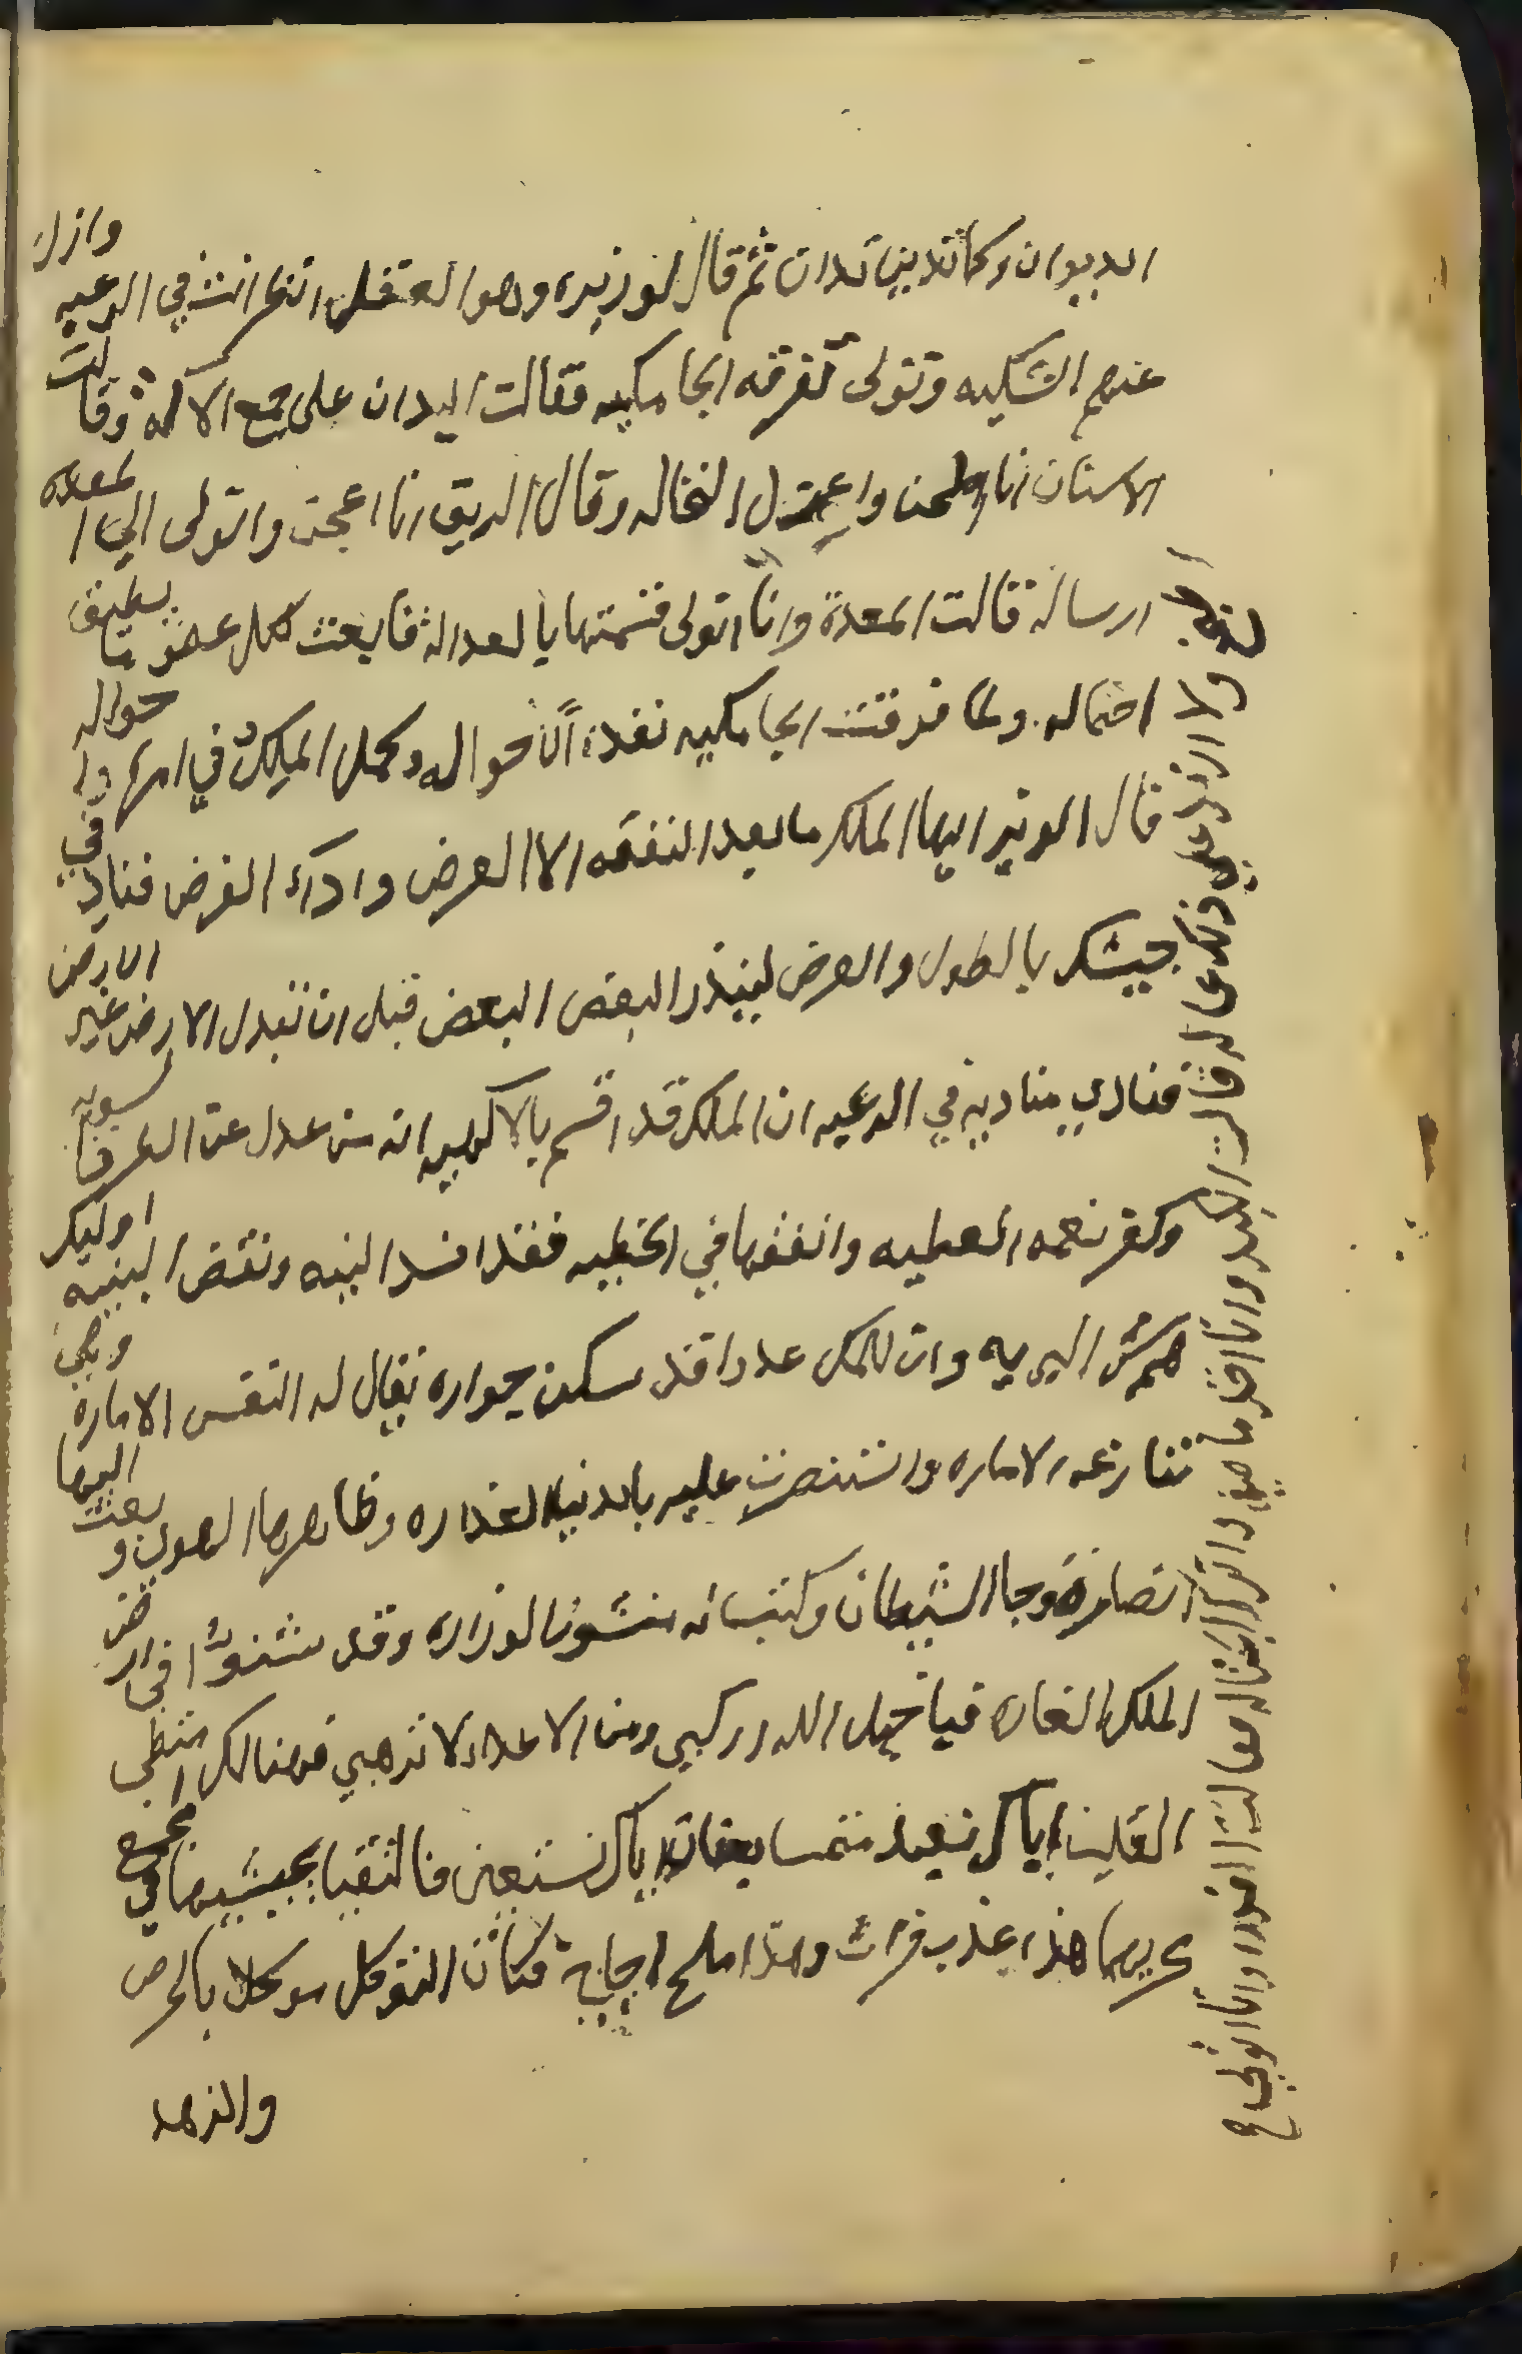 الديوان وكما تدين تدان ثم قال لوزيره وهو العقل انظر انت في الرعيه وازل
عنهم الشكيه وتولى تفرقه الجامكيه فقالت اليدان على جمع الاله وقالت
الاسنان انا اطحن واعتزل النخاله وقال الريق انا اعجن واتولى الي المعده
ارساله قالت المعدة وانا اتولى قسمتها بالعداله فابعث لكل عضو ما يطيق
احتماله ولما فرقت الجامكيه نقدا لا حواله وكمل الملك في امره حواله
قال الوزير ايها الملك ما بعد النفقه الا العرض واداء الفرض فناد في
جيشك بالطول والعرض لينذر البعض البعض قبل ان تبدل الارض غير الارض
فنادي مناديه في الرعيه ان الملك قد اقسم بالاهيه انه من عدل عن الطرق السويه
وكفر نعمه العطيه وانفقها في الخطيه فقد افسد النيه ونقض البنيه اوليك
هم شر البريه وان للملك عدوا قد سكن جواره يقال له النفس الاماره وهي
تنازعه الاماره وانتصرت عليه بالدنيا الغداره وظاهرها الهوى وبعث اليها
انصاره وجا الشيطان وكتب له منشور الوزاره وقد شنوا في ارض
الملك الغاره فيا خيل الله اركبي ومن الاعداء لا ترهبي فهنالك امتطى
القلب اياك نعبد متمسا بعنان اياك نستعين فالتقيا بجيشيهما في مجمع
بحريهما هذا عذب فرات وهذا ملح اجاج فكان التوكل موكلا بالحرص
والزهد
ولا ازيد علي ذلك عماله قالت الكبد وانا اخذ ما صفي واترك الحثاله فقالت